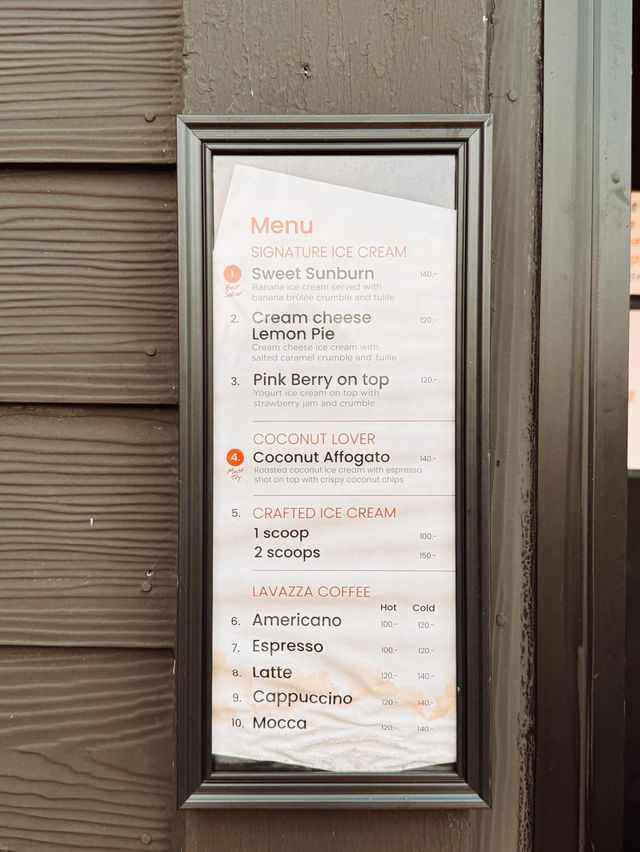 Menu
SIGNATURE ICE CREAM
1. Sweet Sunburn 140.-
Best Seller
Banana ice cream served with
banana brûlée crumble and tuille
2. Cream cheese 120.-
Lemon Pie
Cream cheese ice cream with
salted caramel crumble and tuille
3. Pink Berry on top 120.-
Yogurt ice cream on top with
strawberry jam and crumble
COCONUT LOVER
4. Coconut Affogato 140.-
Must Try
Roasted coconut ice cream with espresso
shot on top with crispy coconut chips
5. CRAFTED ICE CREAM
1 scoop 100.-
2 scoops 150.-
LAVAZZA COFFEE
Hot Cold
6. Americano 100.- 120.-
7. Espresso 100.- 120.-
8. Latte 120.- 140.-
9. Cappuccino 120.- 140.-
10. Mocca 120.- 140.-